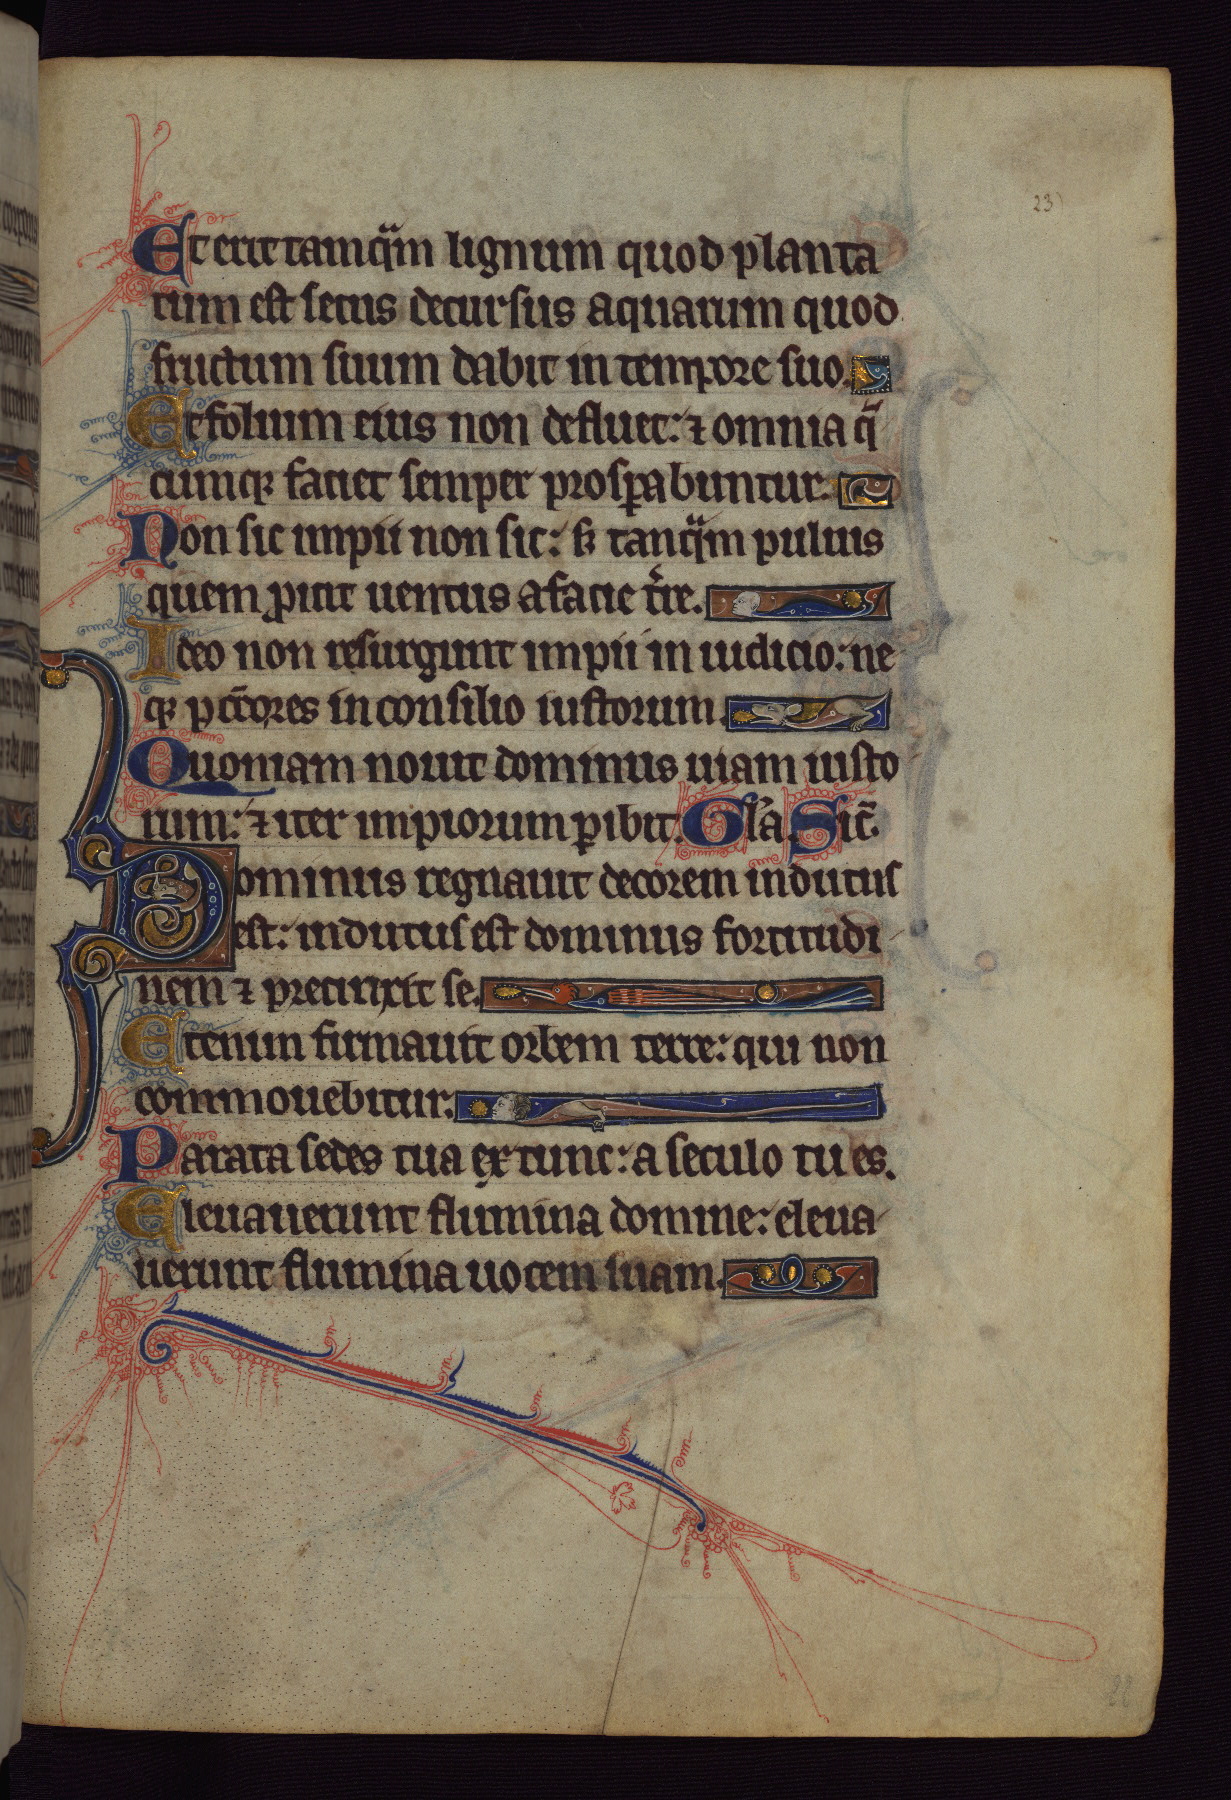 23
Et erit tamq̃m lignum quod planta
tum est secus decursus aquarum quod
fructum suum dabit in tempore suo.
Et folium eius non defluet: ⁊ omnia q̃
cumqꝫ faciet semper prosꝑabuntur.
Non sic impii non sic: sꝫ tanq̃m puluis
quem ꝓicit uentus a facie t̉re.
Ideo non resurgunt impii in iudicio: ne
qꝫ pctõres in consilio iustorum.
Quoniam nouit dominus uiam iusto
rum: ⁊ iter impiorum ꝑibit. Gl̃a Sic̃.
Dominus regnauit decorem indutus
est: indutus est dominus fortitudi
nem ⁊ precinxit se.
Etenim firmauit orbem terre: qui non
commouebitur.
Parata sedes tua ex tunc: a seculo tu es.
Eleuauerunt flumina domine: eleua
uerunt flumina uocem suam.
22